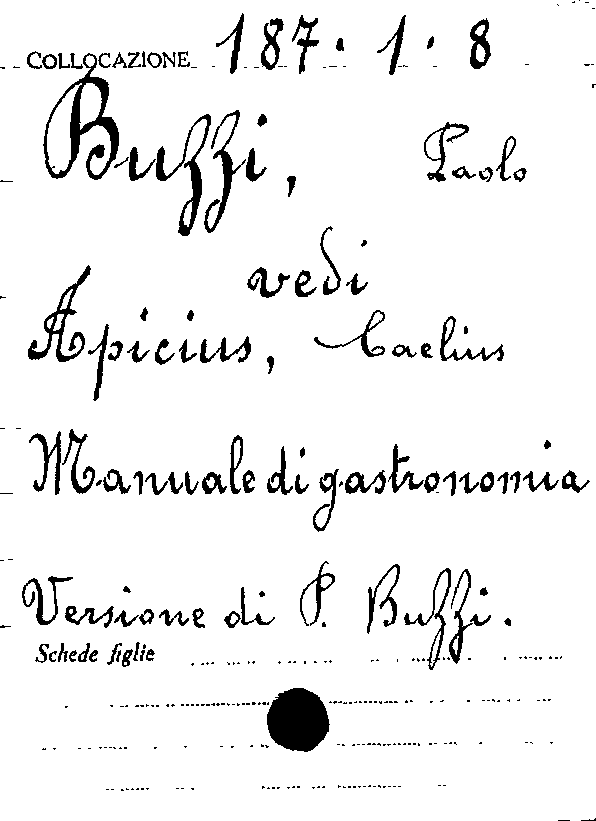 COLLOCAZIONE 187. 1. 8
Buzzi, Paolo
vedi
Apicius, Caelius
Manuale di gastronomia
Versione di P. Buzzi.
Schede figlie